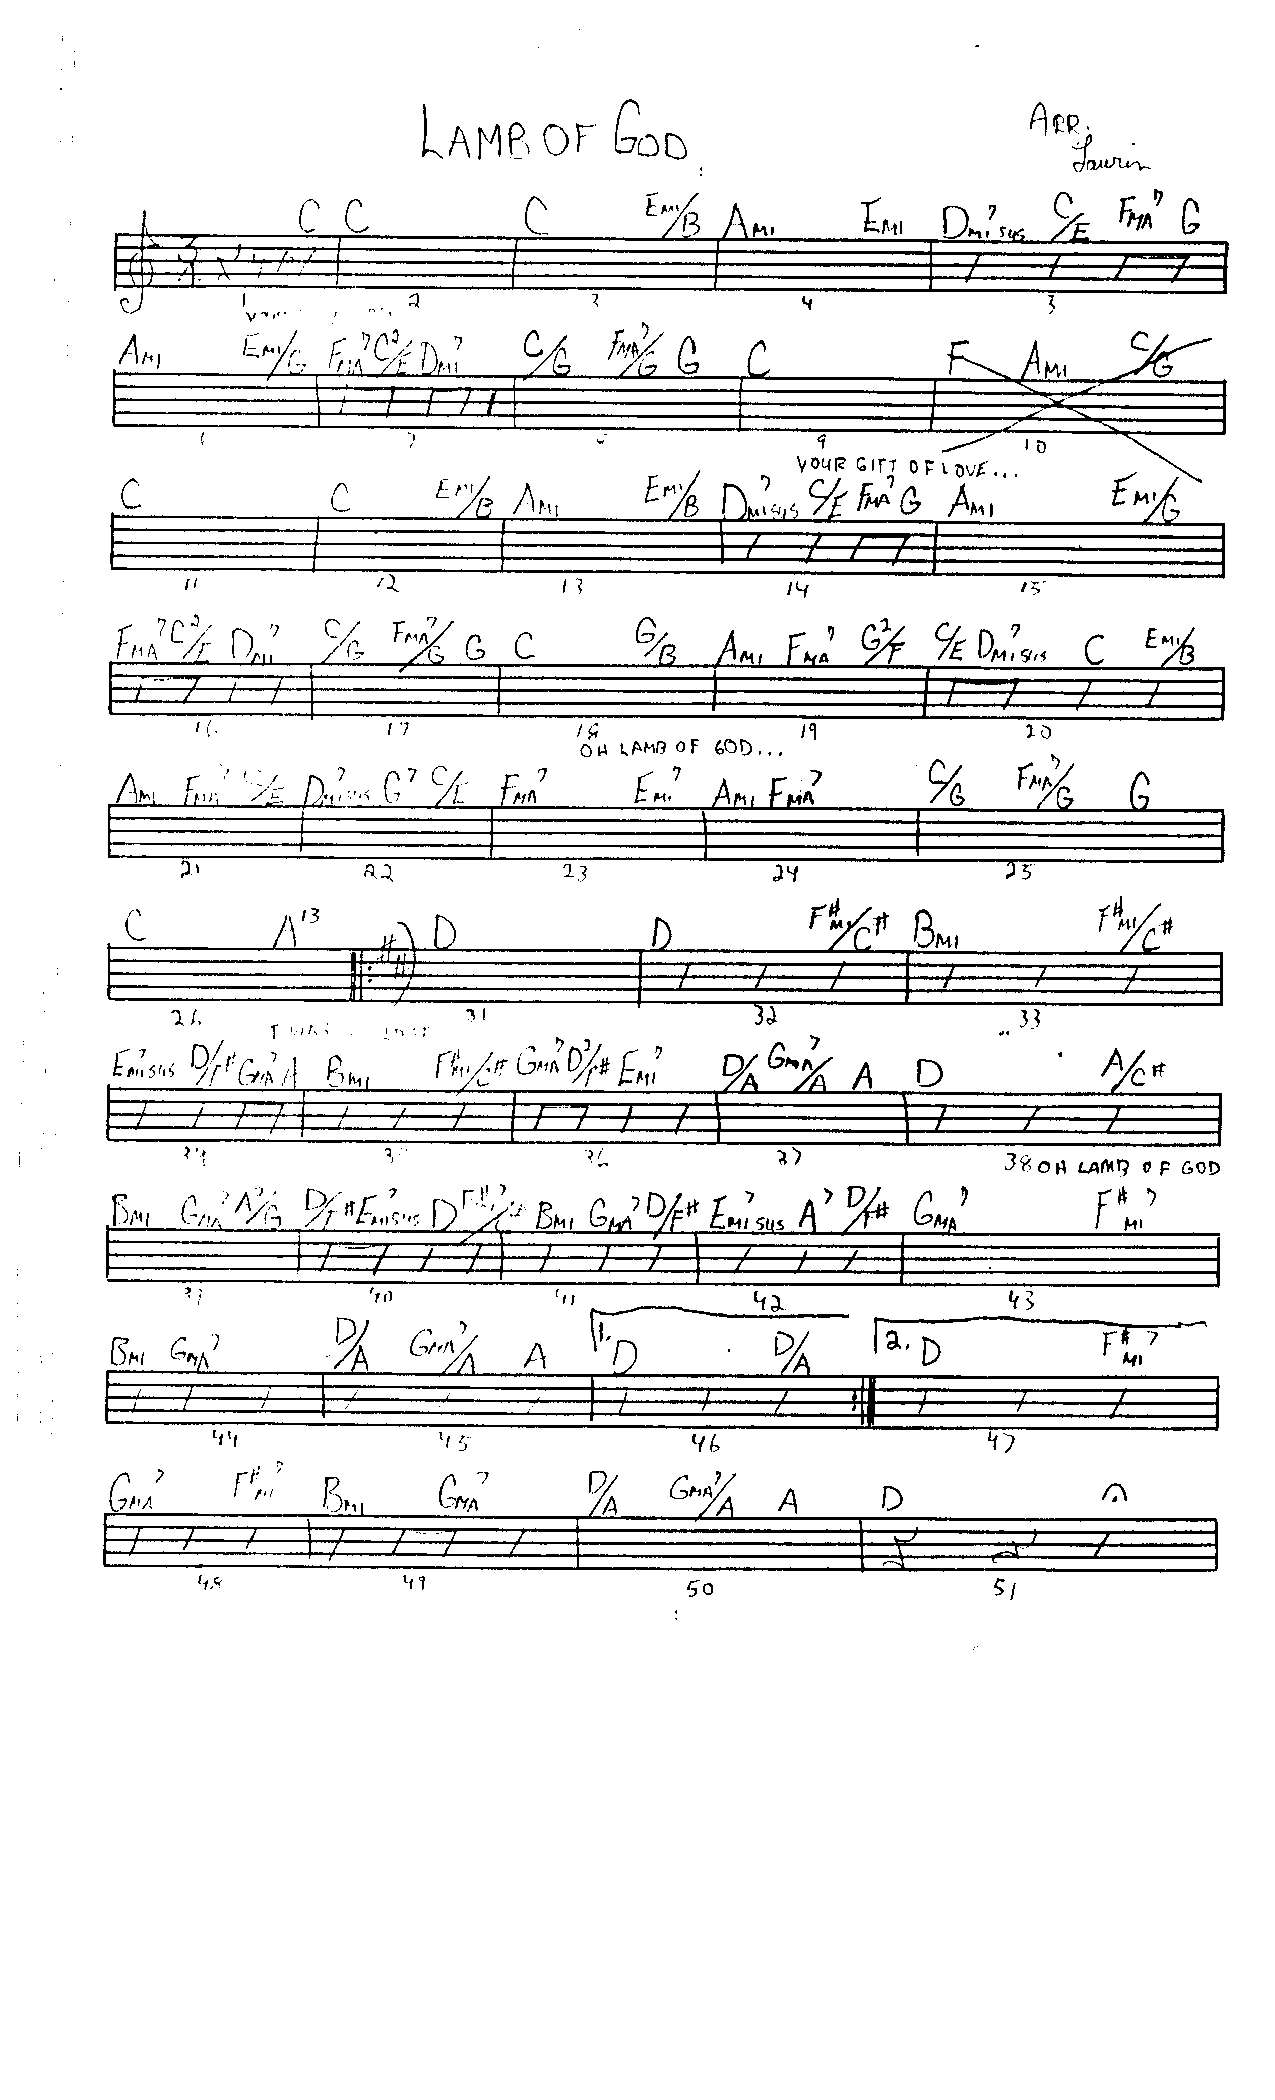 LAMB OF GOD
ARR. Laurin
C C C EMI/B AMI EMI DMI7SUS C/E FMA7 G
1 2 3 4 5
AMI EMI/G FMA7 C2/E DMI7 C/G FMA7/G G C F AMI C/G
7 9 10
YOUR GIFT OF LOVE...
C C EMI/B AMI EMI/B DMI7SUS C/E FMA7 G AMI EMI/G
11 12 13 14 15
FMA7 C2/E DMI7 C/G FMA7/G G C G/B AMI FMA7 G2/F C/E DMI7SUS C EMI/B
16 17 18 19 20
OH LAMB OF GOD...
AMI FMA7 C/E DMI7SUS G7 C/E FMA7 EMI7 AMI FMA7 C/G FMA7/G G
21 22 23 24 25
C A13 D D F#MI/C# BMI F#MI/C#
26 31 32 33
EMI7SUS D/F# GMA7 A BMI F#MI/C# GMA7 D2/F# EMI7 D/A GMA7/A A D A/C#
34 36 37 38 OH LAMB OF GOD
BMI GMA7 A2/G D/F# EMI7SUS D BMI GMA7 D/F# EMI7SUS A7 D/F# GMA7 F#MI7
40 41 42 43
BMI GMA7 D/A GMA7/A A 1. D D/A 2. D F#MI7
44 45 46 47
GMA7 F#MI7 BMI GMA7 D/A GMA7/A A D
48 49 50 51